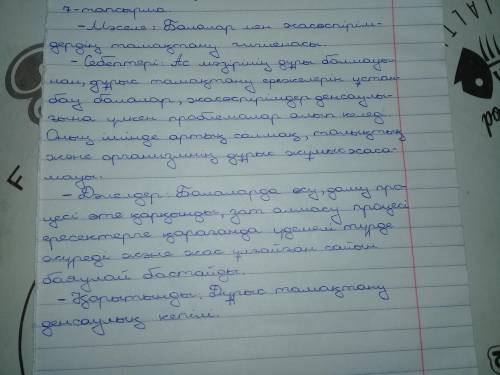 7-тапсырма.
- Мәселе: Балалар мен жасөспірім-
дердің тамақтану гигиенасы.
- Себептері: Ас мәзірінің дұрыс болмауы-
нан, дұрыс тамақтану ережелерін ұстан-
бау балалар, жасөспірімдер денсаулы-
ғына үлкен проблемалар алып келеді
Оның ішінде артық салмақ, толықтық
және организмнің дұрыс жұмыс жаса-
мауы.
- Дәлелдер: Балаларда өсу, даму про-
цесі өте қарқынды, зат алмасу процесі
ересектерге қарағанда үдемелі түрде
жүреді және жас ұлғайған сайын
баяулай бастайды.
- Қорытынды: Дұрыс тамақтану
денсаулық кепілі.
F
ALT
od